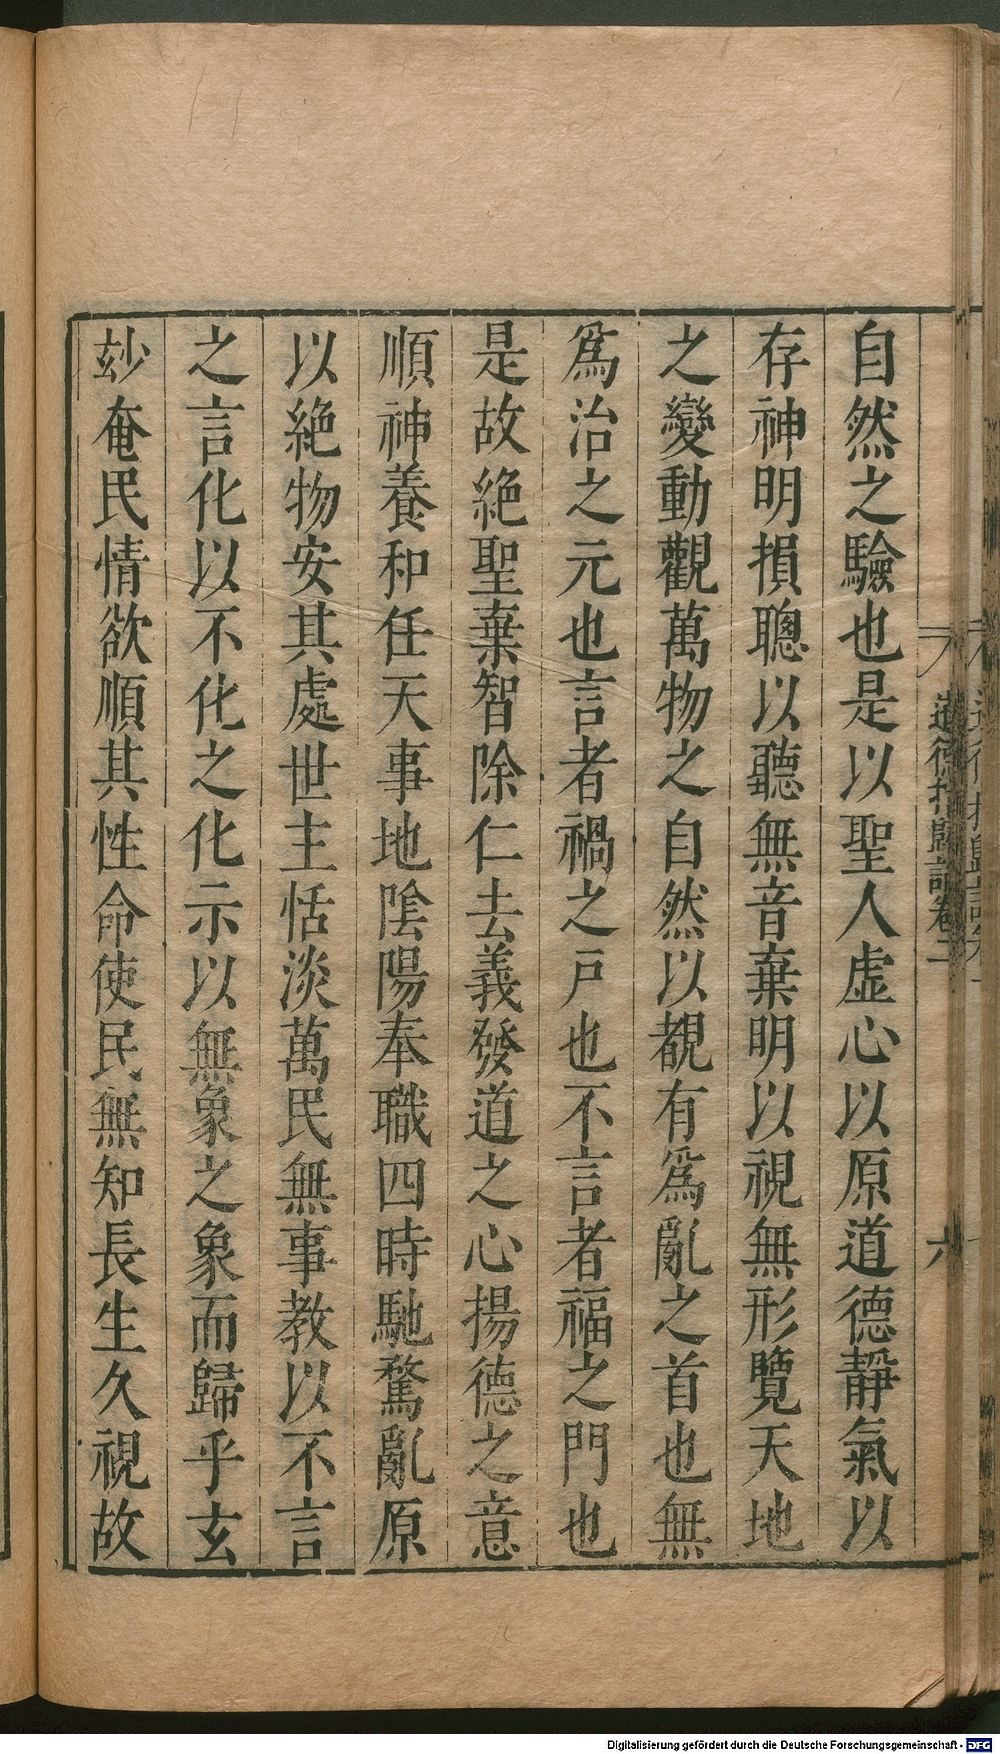 自然之驗也是以聖人虛心以原道德靜氣以
存神明損聰以聽無音棄明以視無形覽天地
之變動觀萬物之自然以覩有爲亂之首也無
爲治之元也言者禍之戸也不言者福之門也
是故絕聖棄智除仁去義發道之心揚德之意
順神養和任天事地陰陽奉職四時馳騖亂原
以絕物安其處世主恬淡萬民無事教以不言
之言化以不化之化示以無象之象而歸乎玄
玅奄民情欲順其性命使民無知長生久視故
道德指歸論卷二
六
Digitalisierung gefördert durch die Deutsche Forschungsgemeinschaft - DFG